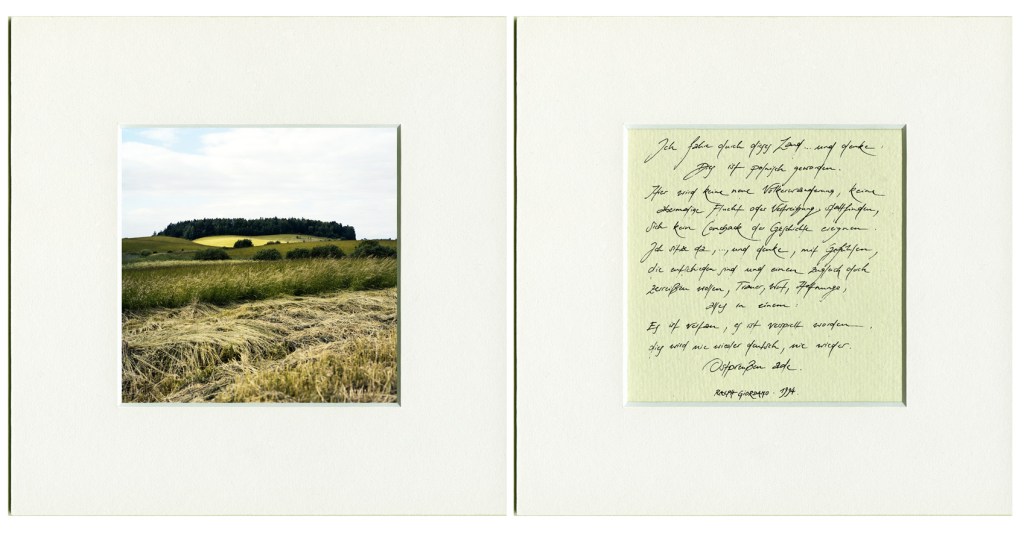 Ich fahre durch dieses Land ... und denke.
Dies ist polnisch geworden.
Hier wird keine neue Völkerwanderung, keine
abermalige Flucht oder Vertreibung stattfinden,
sich kein Comeback der Geschichte ereignen.
Ich sitze da, ..., und denke, mit Gefühlen,
die entschieden sind und einen zugleich doch
zerreißen wollen, Trauer, Wut, Hoffnung,
alles in einem.
Es ist verloren, es ist verspielt worden.
dies wird nie wieder deutsch, nie wieder.
Ostpreußen ade.
RALPH GIORDANO . 1994.